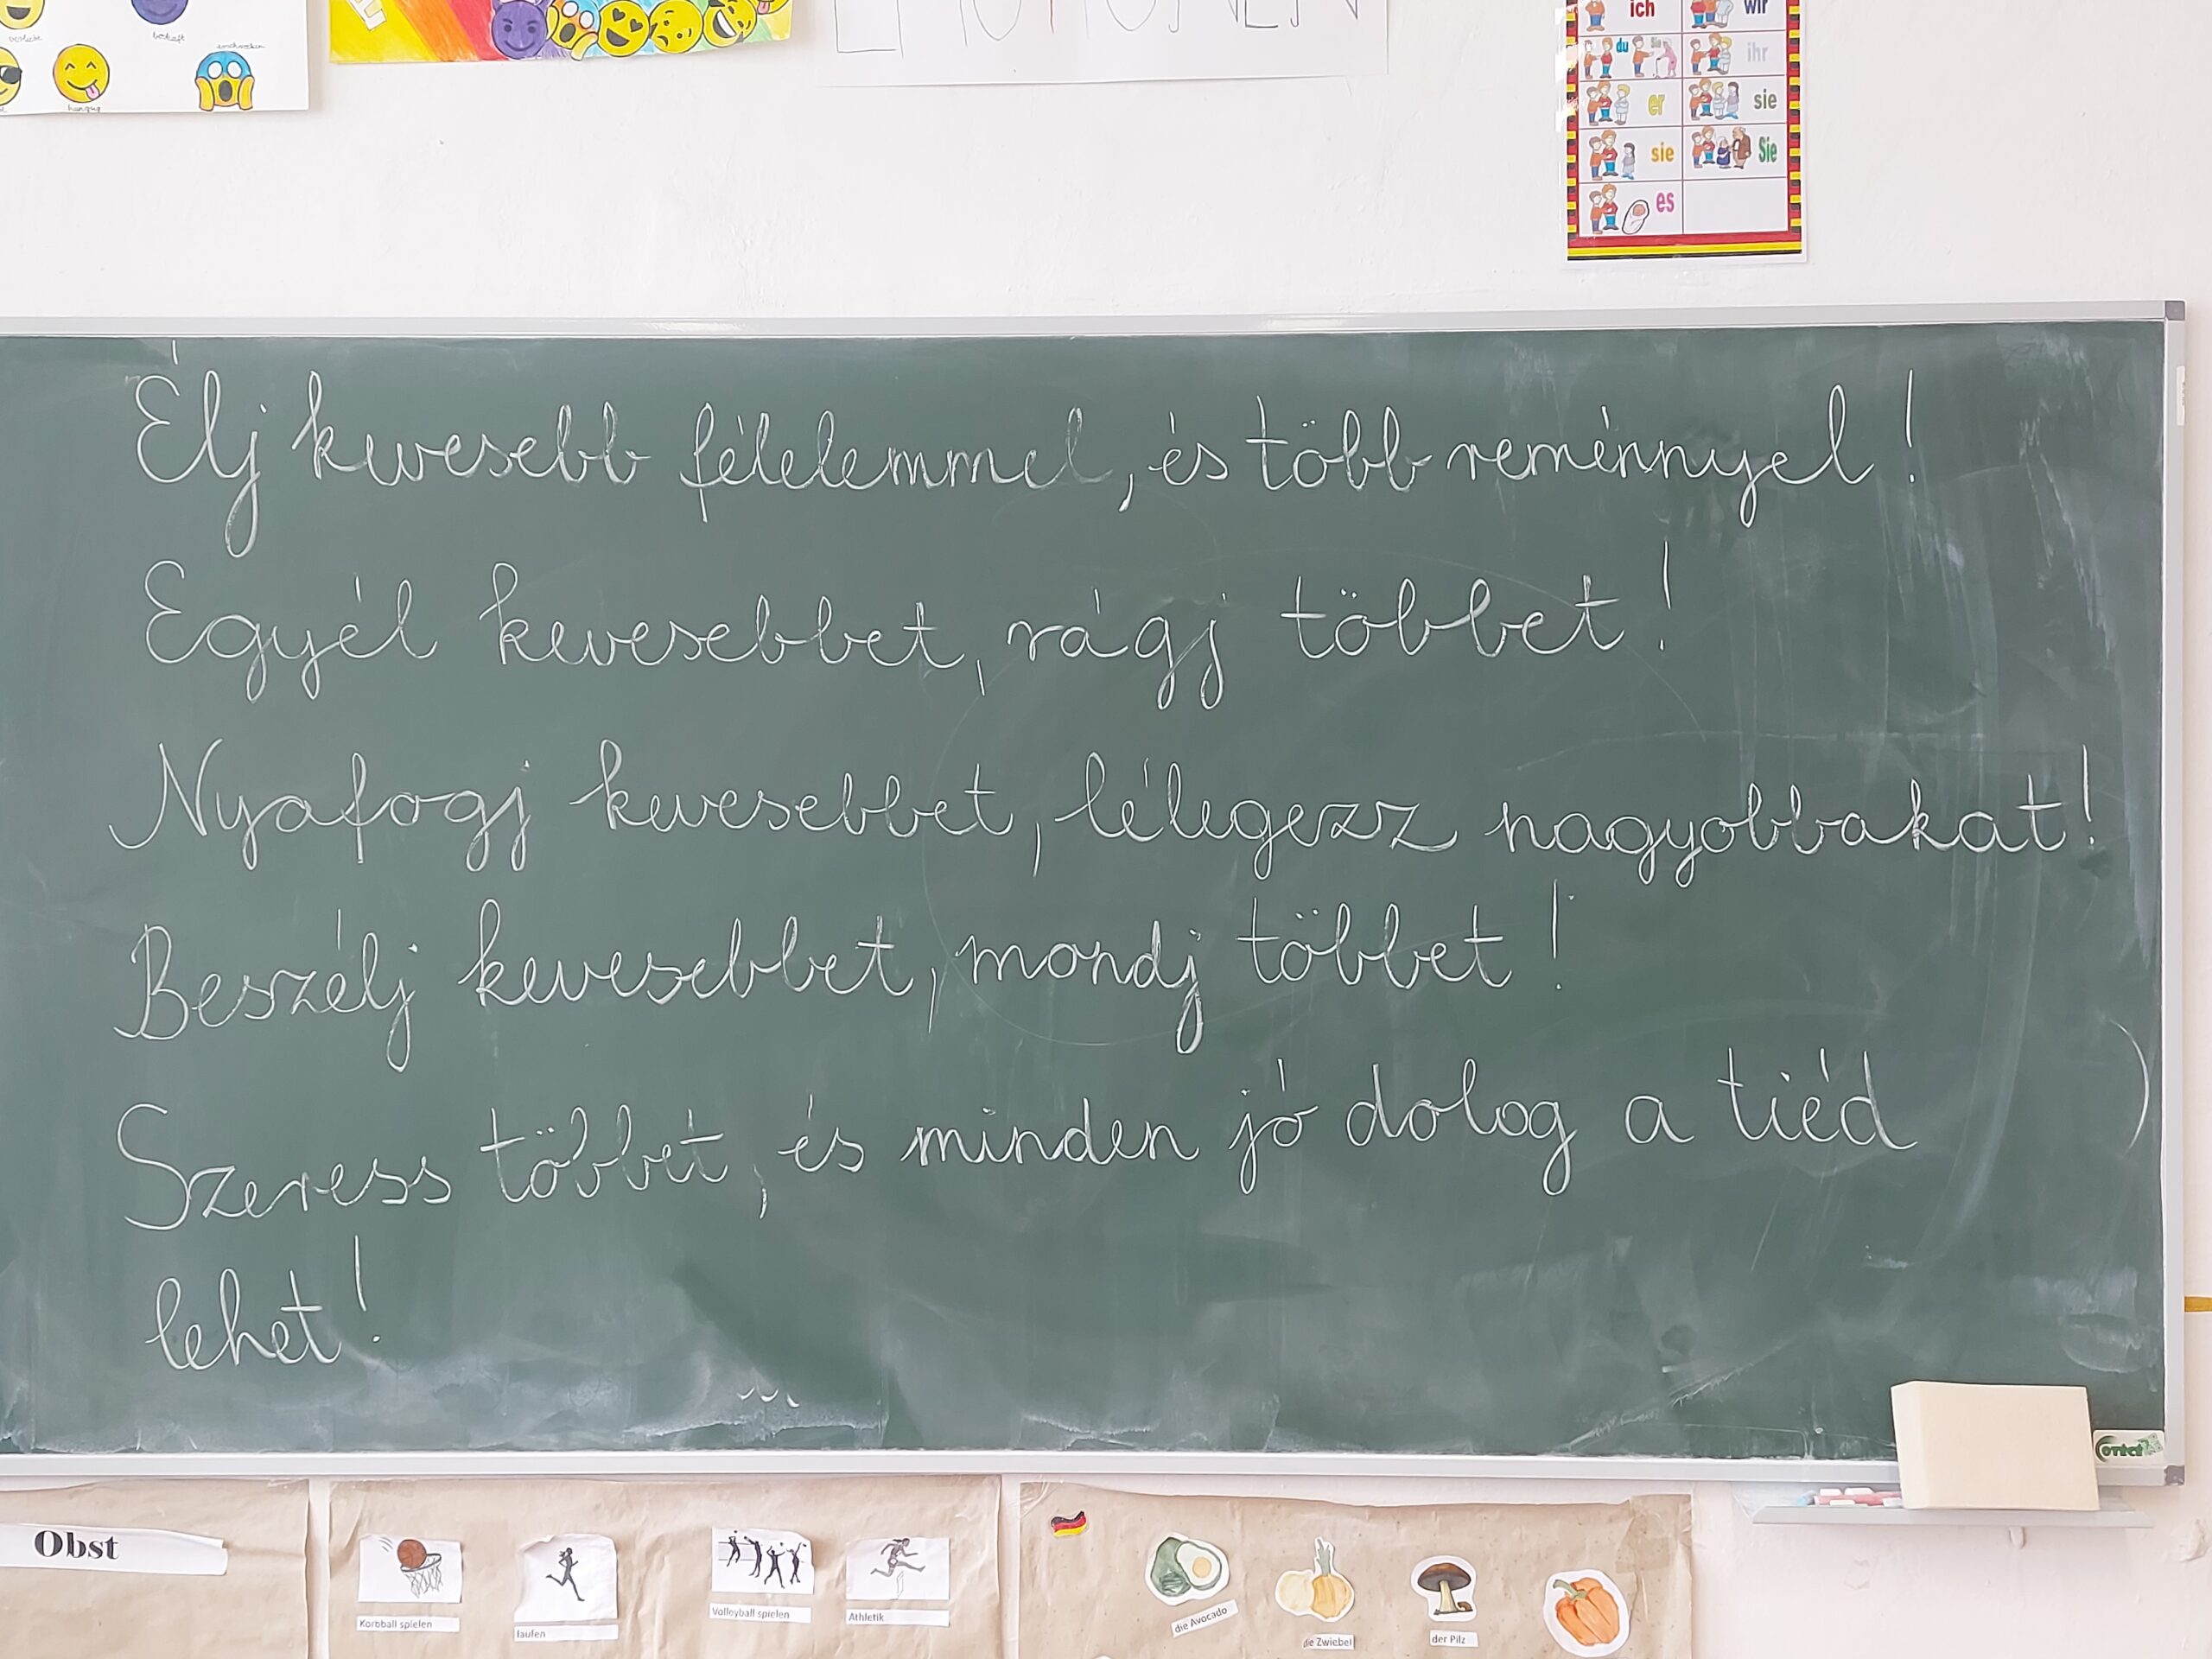 ich wir
du Sie ihr
er sie
sie Sie
es
Élj kevesebb félelemmel, és több reménnyel!
Egyél kevesebbet, rágj többet!
Nyafogj kevesebbet, lélegezz nagyobbakat!
Beszélj kevesebbet, mondj többet!
Szeress többet, és minden jó dolog a tiéd
lehet!
Obst
Korbball spielen
laufen
Volleyball spielen
Athletik
die Avocado
die Zwiebel
der Pilz